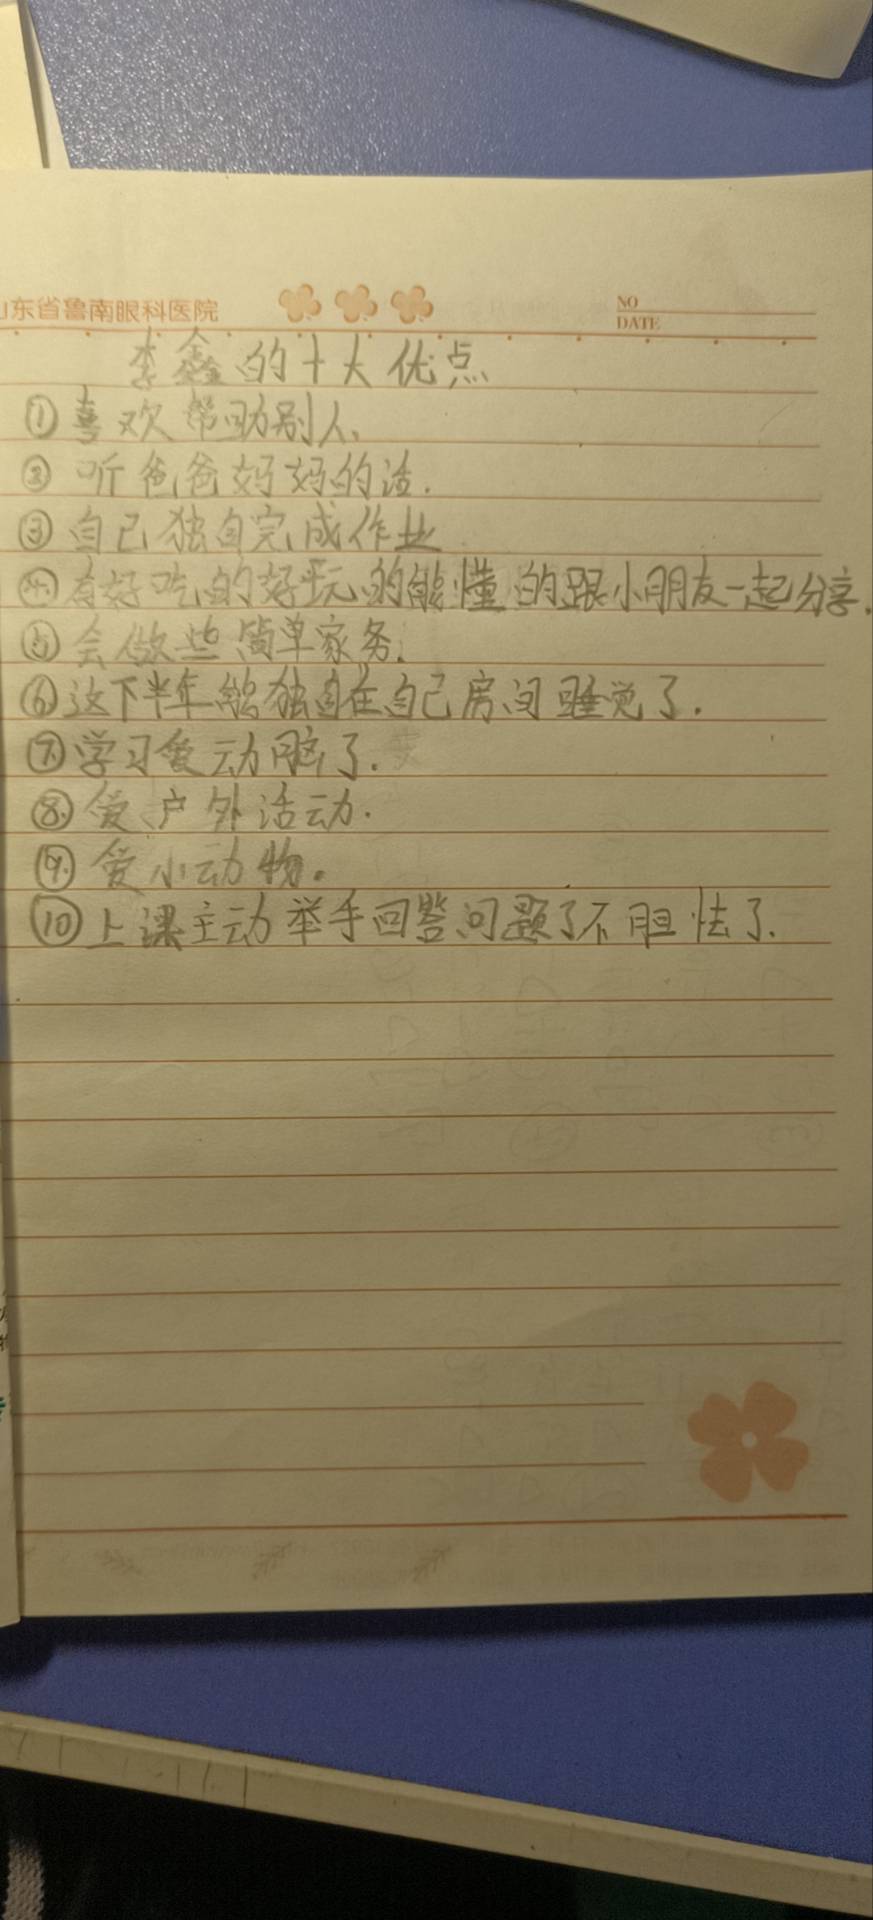 山东省鲁南眼科医院
NO
DATE
李鑫的十大优点
①喜欢帮助别人、
②听爸爸妈妈的话.
③自己独自完成作业
④有好吃的好玩的能懂的跟小朋友一起分享.
⑤会做些简单家务.
⑥这下半年能独自在自己房间睡觉了.
⑦学习爱动脑了.
⑧爱户外活动.
⑨爱小动物。
⑩上课主动举手回答问题了不胆怯了.